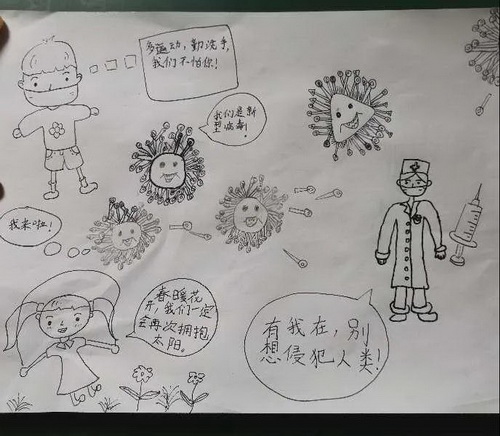 多运动，勤洗手，
我们不怕你！
我们是新
型病毒！
我来啦！
春暖花
开，我们一定
会再次拥抱
太阳。
有我在，别
想侵犯人类！